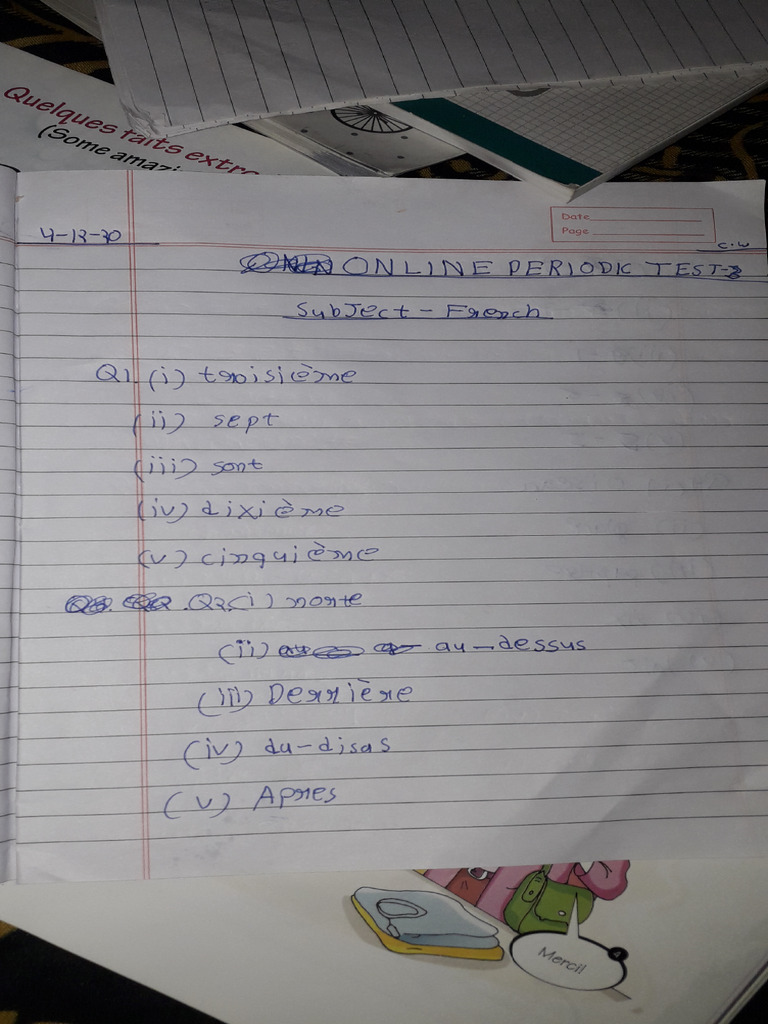 Quelques faits extra
(Some amazi
Date
Page
4-12-20
C.W
ONLINE PERIODIC TEST-3
Subject - French
Q1. (i) troisième
(ii) sept
(iii) sont
(iv) dixième
(v) cinquième
Q2. (i) norte
(ii) au-dessus
(iii) Derrière
(iv) du-disas
(v) Apres
Merci!